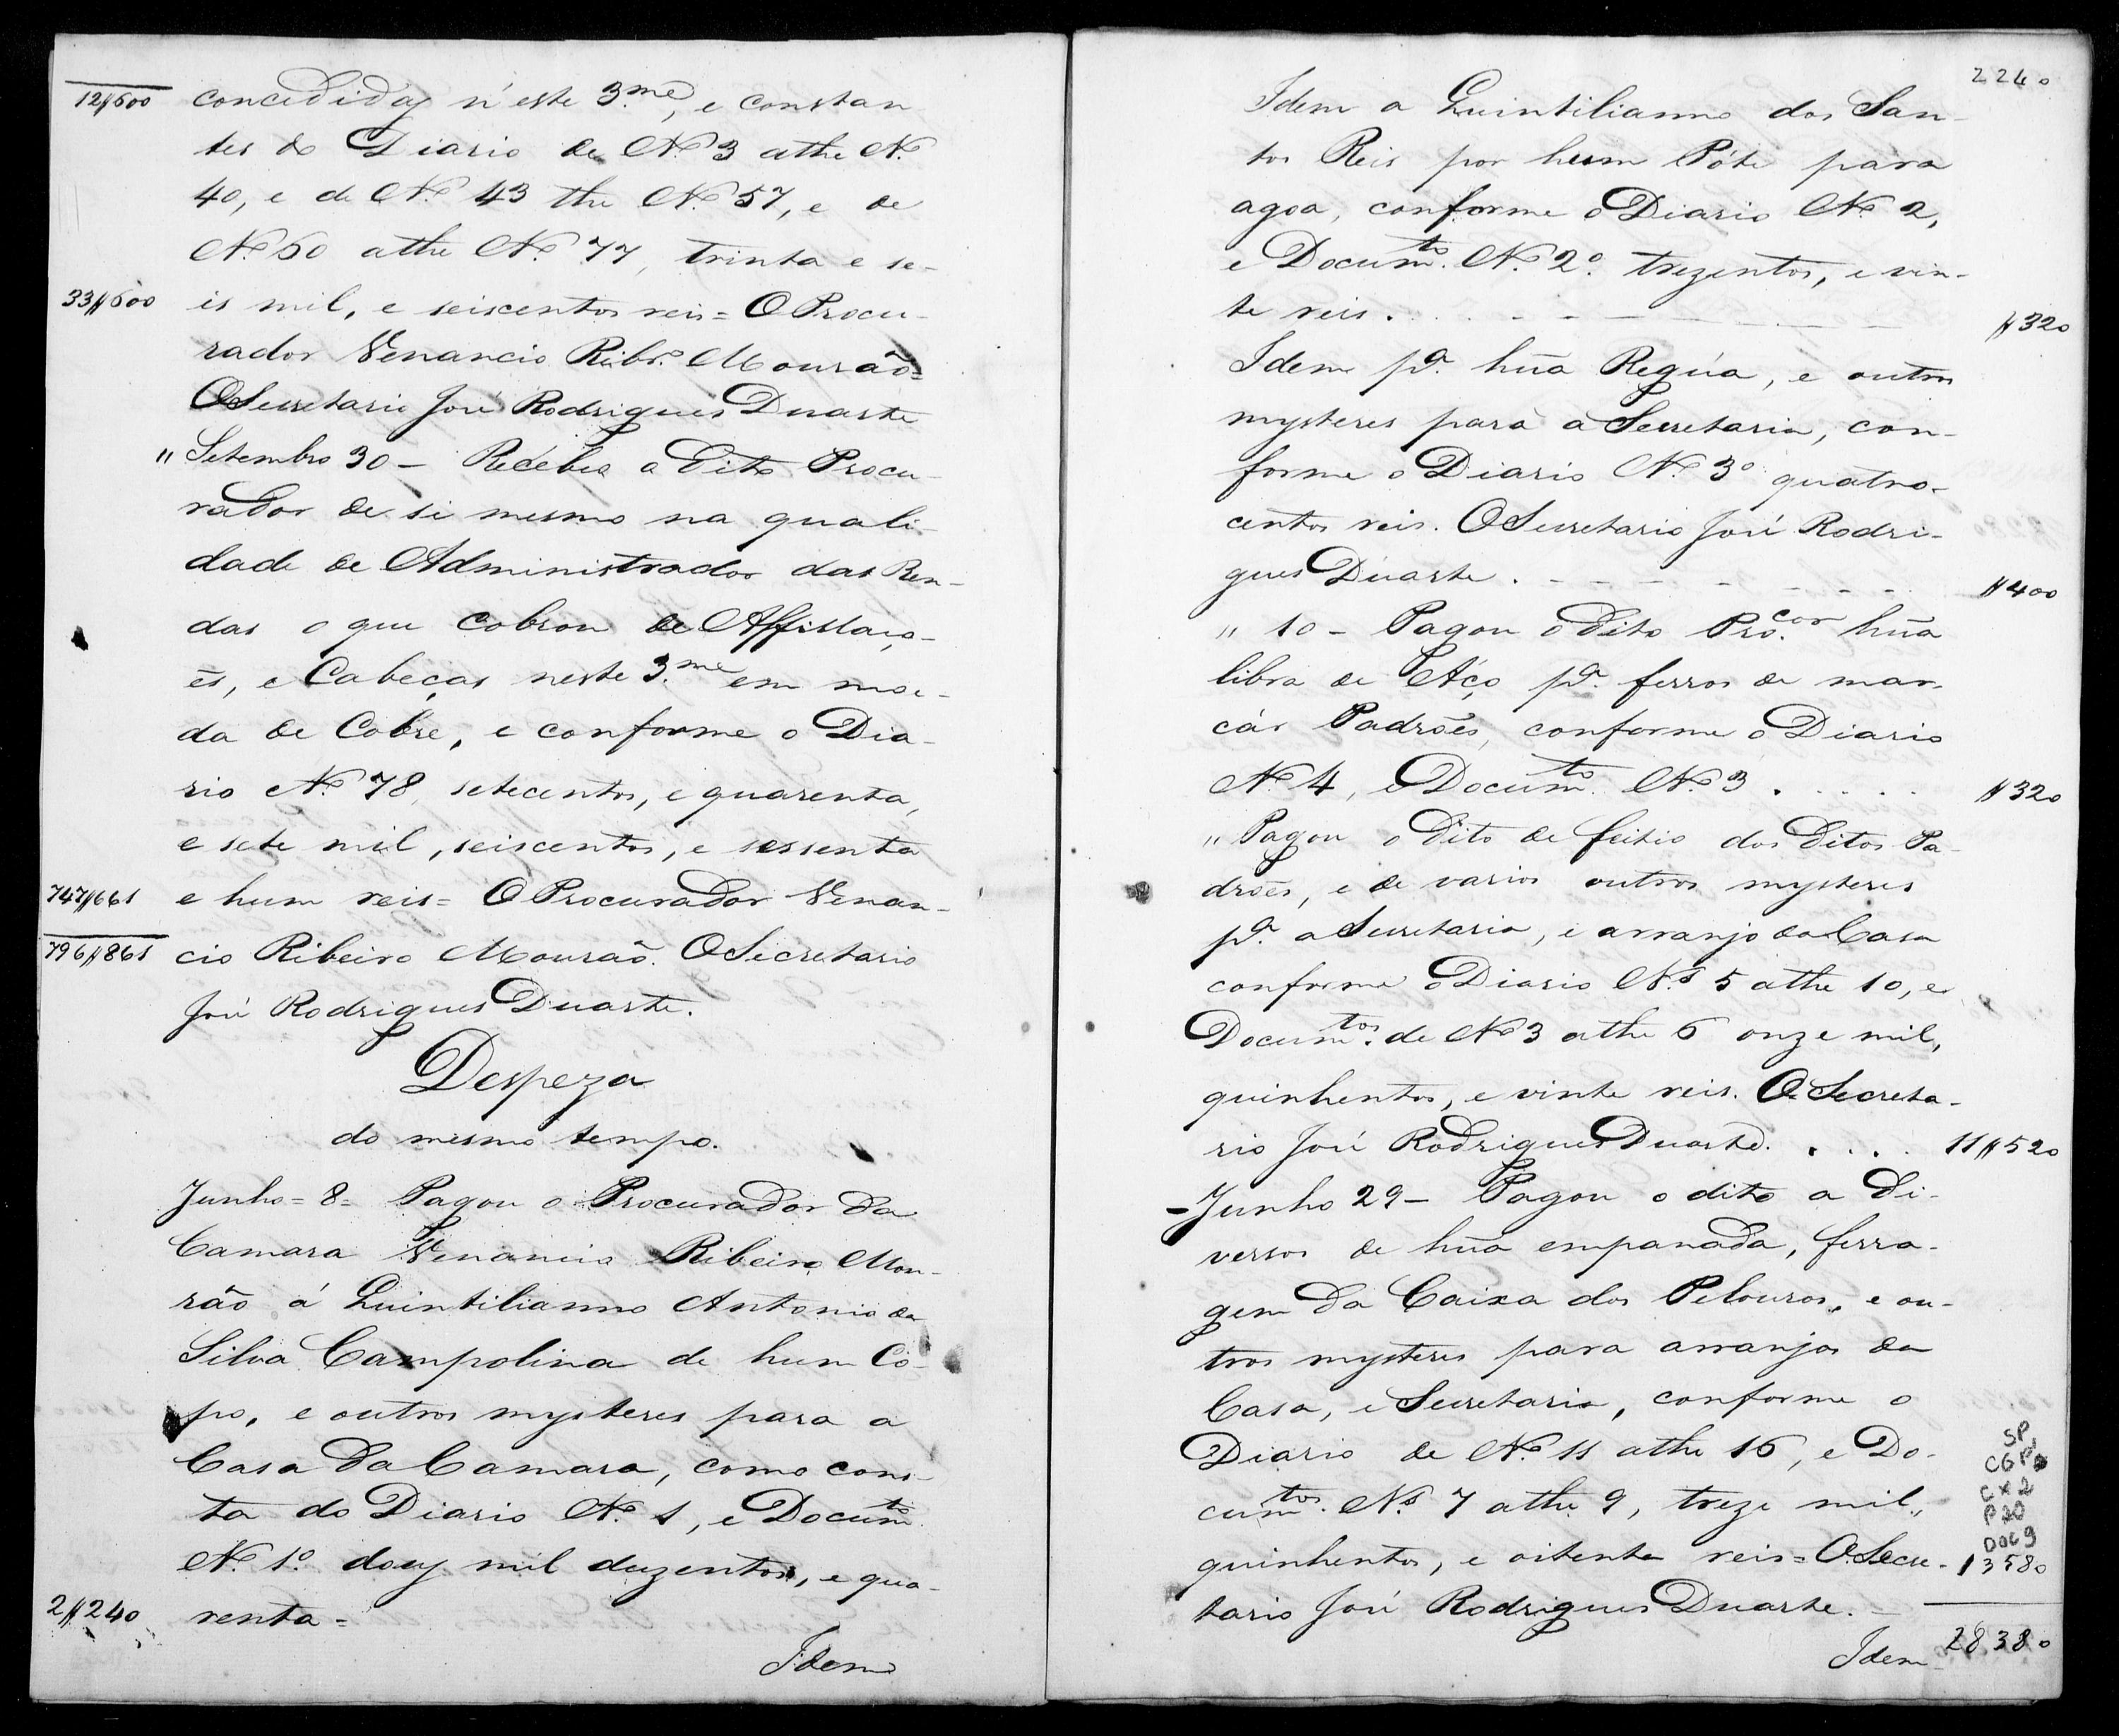 12$600 concedidas n'este 3.me, e constan
tes do Diario de N.º 3 athe N.
40, e de N.º 43 the N.º 57, e de
N.º 60 athe N.º 77, trinta e se-
33$600 is mil, e seiscentos reis = O Procu-
rador Venancio Ribr.º Mourão =
O Secretario José Rodrigues Duarte
" Setembro 30 - Recebeo o Dito Procu-
rador de si mesmo na quali-
dade de Administrador das Ren-
das o que Cobrou de Affillaço-
ẽs, e Cabeças neste 3.me em moe-
da de Cobre, e conforme o Dia-
rio N.º 78, setecentos, e quarenta,
e sete mil, seiscentos, e sessenta
747$661 e hum reis = O Procurador Venan-
796$861 cio Ribeiro Mourão. O Secretario
José Rodrigues Duarte.
Despeza
do mesmo tempo.
Junho = 8 = Pagou o Procurador da
Camara Venancio Ribeiro Mou-
rão á Quintilianno Antonio da
Silva Campolina de hum Co-
po, e outros mysteres para a
Casa da Camara, como cons-
ta do Diario N.º 1, e Docum.to
N.º 1.º dous mil duzentos, e qua-
2$240 renta =
Idem
2240
Idem a Quintilianno dos San-
tos Reis por hum Póte para
agoa, conforme o Diario N.º 2,
e Docum.to N.º 2.º trezentos, e vin-
te reis. $320
Idem p.ª hũa Regúa, e outros
mysteres para a Secretaria, con-
forme o Diario N.º 3.º quatro-
centos reis. O Secretario José Rodri-
gues Duarte. $400
" 10 - Pagou o Dito Pro.cor hũa
libra de Aço p.ª ferros de mar-
cár Padrões, conforme o Diario
N.º 4, e Docum.to N.º 3. $320
" Pagou o Dito de feitio dos Ditos Pa-
drões, e de varios outros mysteres
p.ª a Secretaria, e arranjo da Casa
conforme o Diario N.s 5 athe 10, e
Docum.tos de N.º 3 athe 6 onze mil,
quinhentos, e vinte reis. O Secreta-
rio José Rodrigues Duarte. 11$520
- Junho 29 - Pagou o dito a Di-
versos de hũa empanada, ferra-
gem da Caixa dos Pelouros, e ou-
tros mysteres para arranjos da
Casa, e Secretaria, conforme o
Diario de N.º 11 athe 16, e Do-
cum.tos N.s 7 athe 9, treze mil,
quinhentos, e oitenta reis = O Secre- 13580
tario José Rodrigues Duarte. -
28380
Idem
SP
CGP
CX2
P20
DOC9